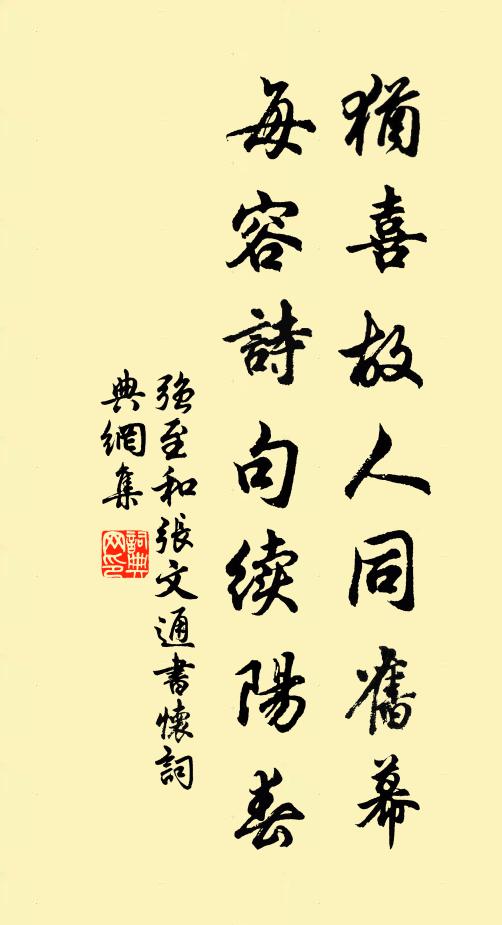 猶喜故人同舊幕
每容詩句續陽春
強至和張文通書懷詞
典網集
詞典
网印